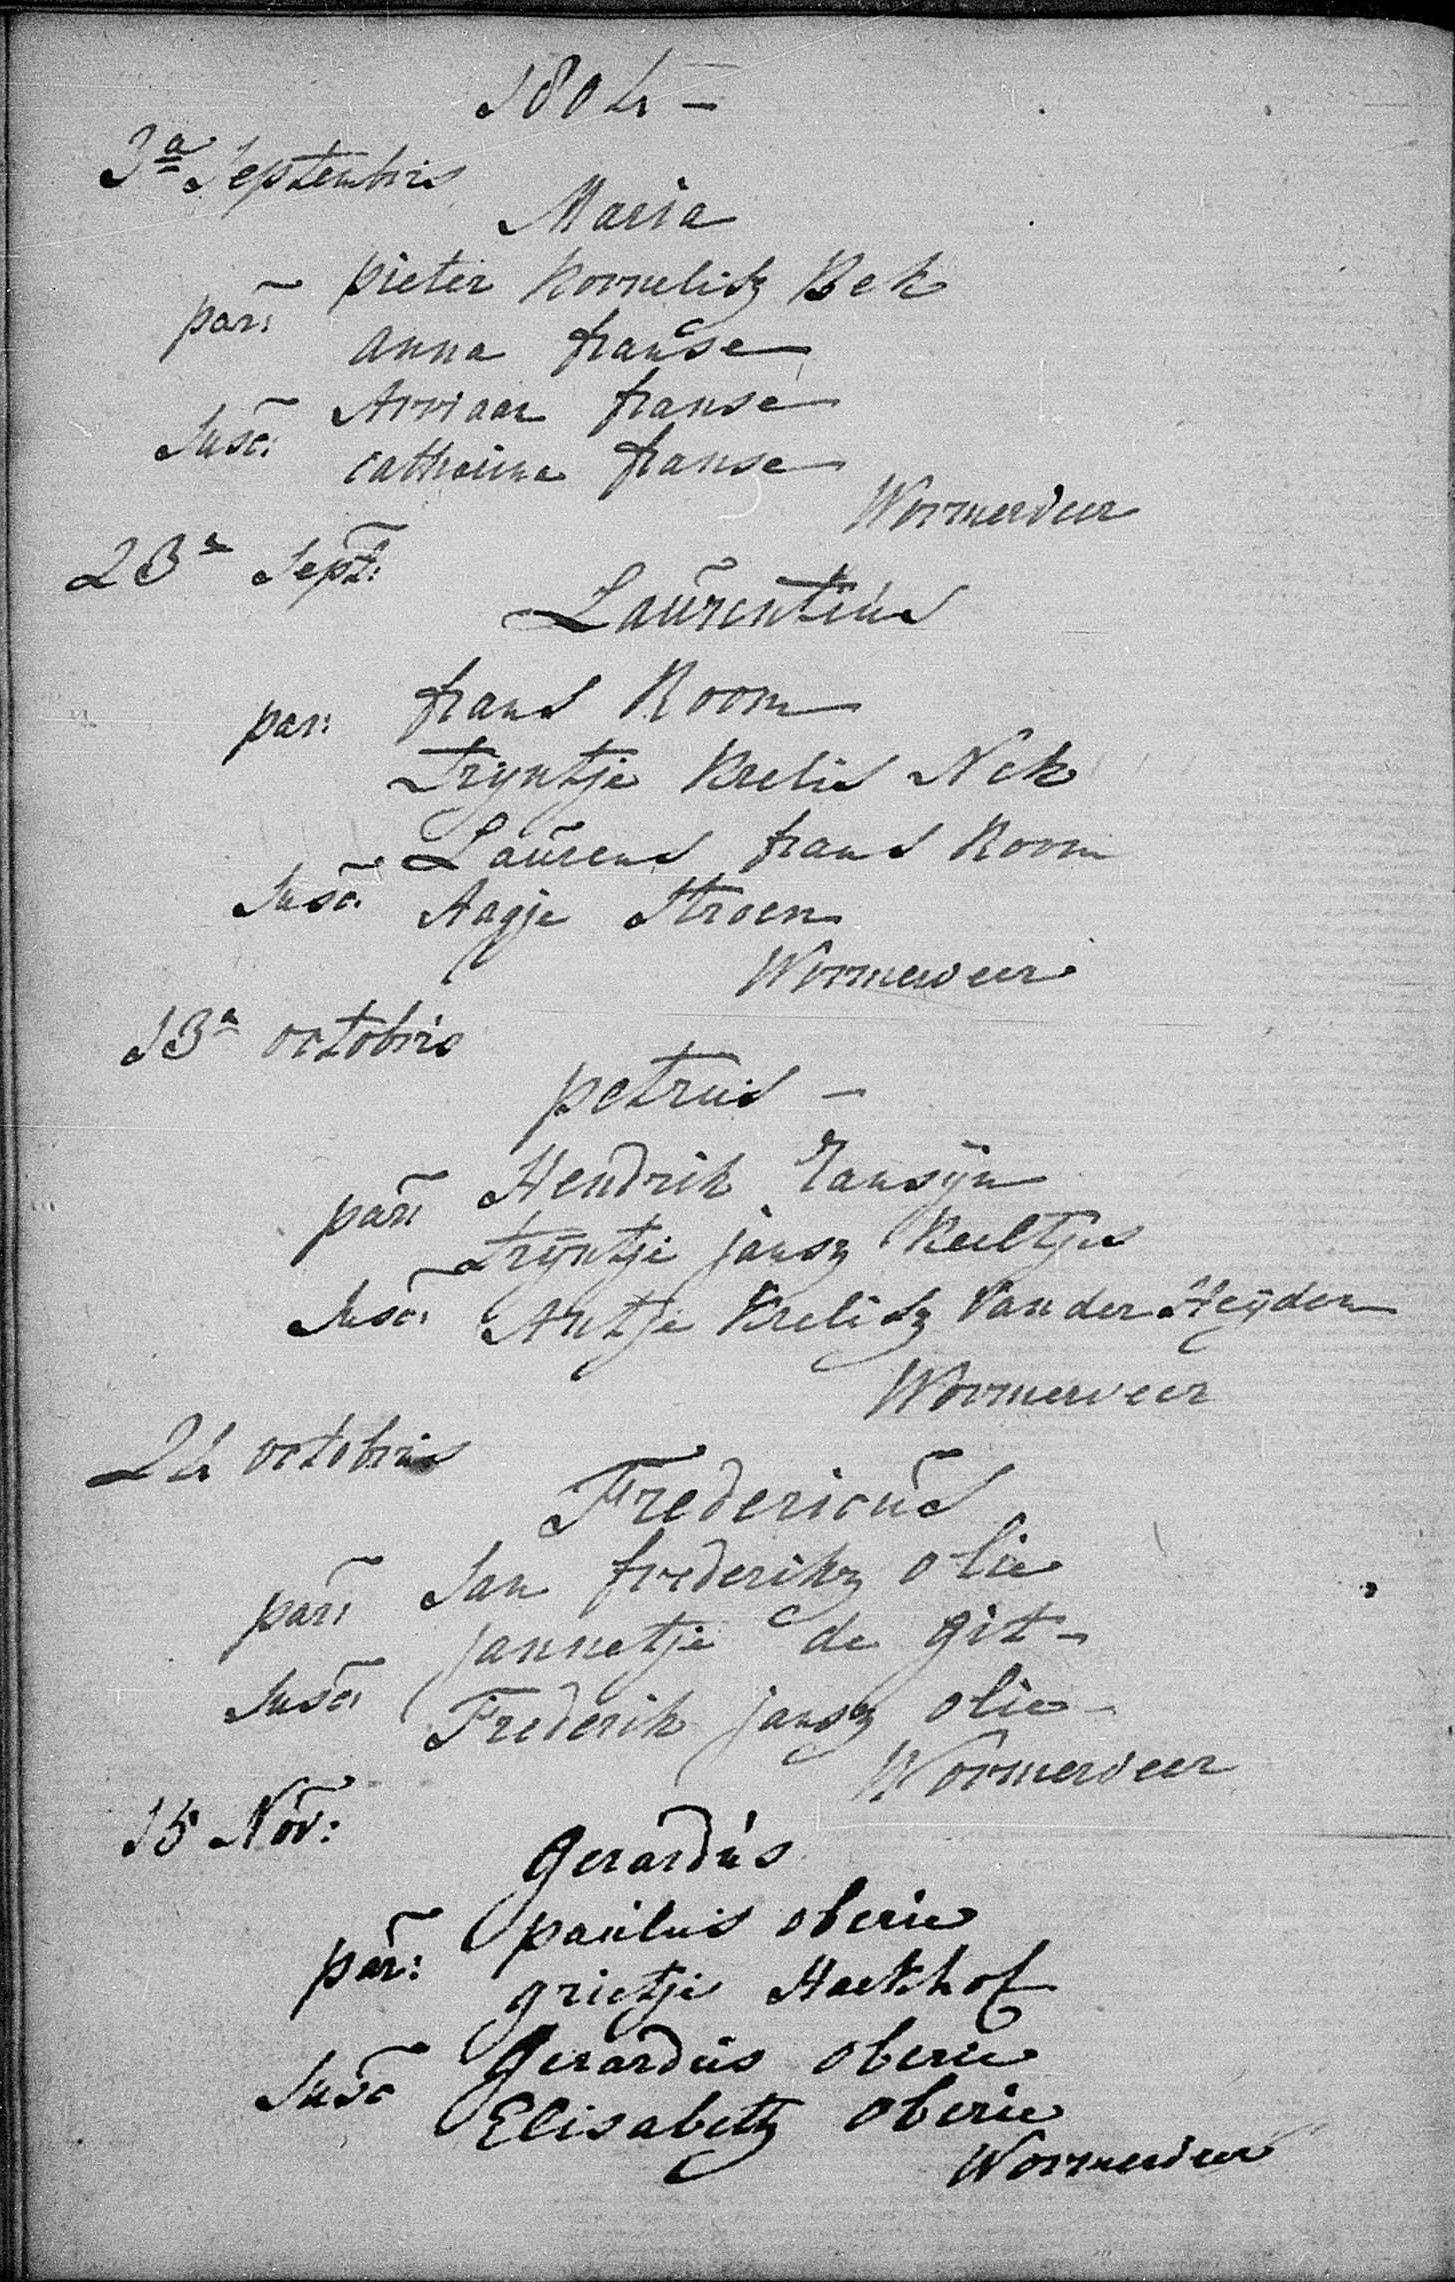 1804 -
3a Septembris
Maria
par: pieter Kornelisz Bek
anna franse
Susc: Arriaan franse
catharina franse
Wormerveer
23a Sept:
Laurentius
par: frans Room
Tryntje Krelis Nek
Laurens frans Room
Susc: Aagje Stroen
Wormerveer
13a octobris
petrus -
par: Hendrik Jansijn
Trijntje jansz Keeltjes
Susc: Antje Krelisz Van der Heijden
Wormerveer
24 octobris
Fredericus
par: Jan frederikz olie
jannetje de git -
Susc: Frederik jansz olie -
Wormerveer
15 Nov:
gerardus
par: paulus oberie
grietje Haekhof
Susc gerardus oberie
Elisabeth oberie
Wormerveer